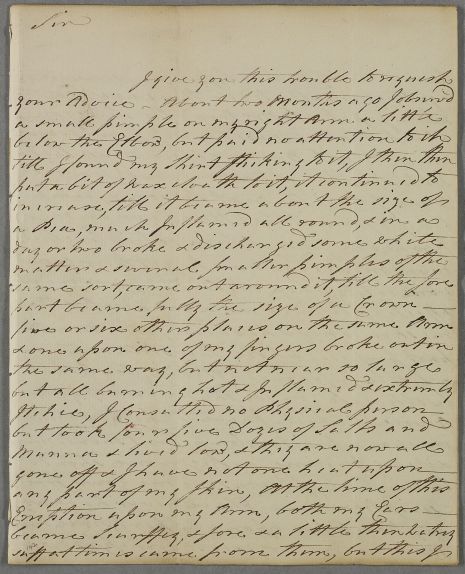 Sir
I give you this trouble to request
your Advice - About two Months ago I observd
a small pimple on my right Arm a little
below the Elbow, but paid no attention to it
till I found my shirt sticking to it, I then
put a bit of Wax cloath to it, it continued to
increase, till it became about the size of
a Pea, much Inflamed all round, & in a
day or two broke & discharged some white
matter & several smaller pimples of the
same sort, came out around it till the sore
part became fully the size of a Crown
five or six other places on the same Arm
& one upon one of my fingers broke out in
the same way, but not near so large
but all burning hot & Inflamed & extremly
Itchie, I Consulted no Physical person
but took four or five Dozes of Salts and
Manna & lived low, & they are now all
gone off & I have not one heat upon
any part of my skin, At the time of this
Eruption upon my Arm, both my Ears
became Scurffey, & sore & a little thin watry
at times came from them, but this I